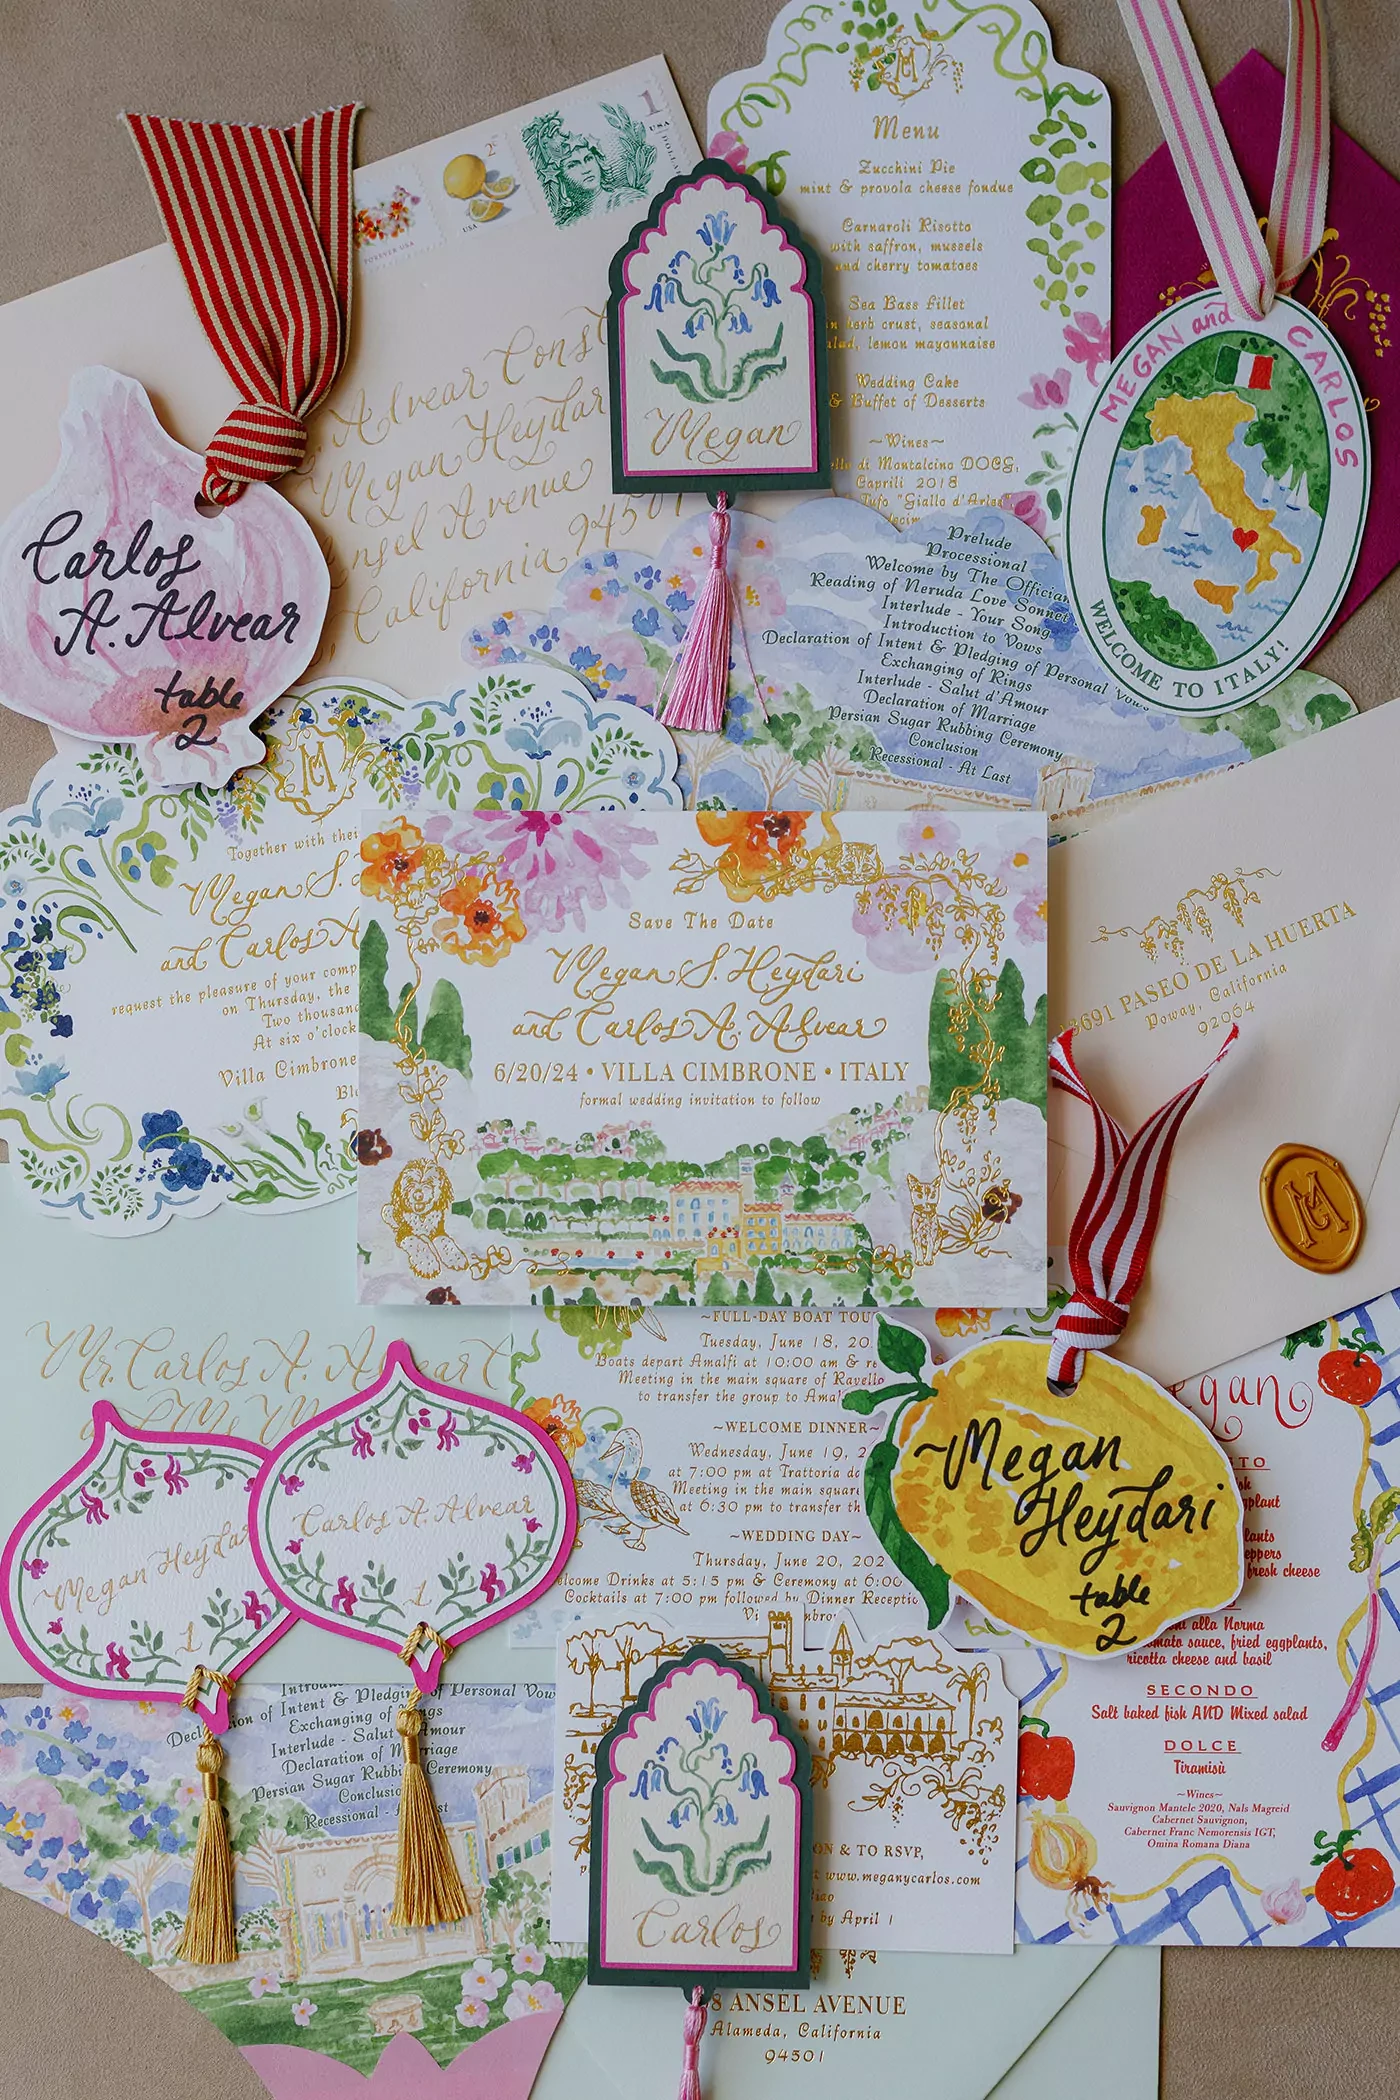 FOREVER USA
2¢
USA
1
USA
DOLLAR
Alvear
Megan Heydari
Ansel Avenue
California 94501
CM
Menu
Zucchini Pie
mint & provola cheese fondue
Carnaroli Risotto
with saffron, mussels
and cherry tomatoes
Sea Bass fillet
herb crust, seasonal
lemon mayonnaise
Wedding Cake
& Buffet of Desserts
~Wines~
di Montalcino DOCG,
Caprili 2018
Tufo "Giallo d'Arles"
Megan
MEGAN and CARLOS
WELCOME TO ITALY!
Carlos
A. Alvear
table
2
Prelude
Processional
Welcome by The Officiant
Reading of Neruda Love Sonnet
Interlude - Your Song
Introduction to Vows
Declaration of Intent & Pledging of Personal Vows
Exchanging of Rings
Interlude - Salut d'Amour
Declaration of Marriage
Persian Sugar Rubbing Ceremony
Conclusion
Recessional - At Last
CM
Together with their
Megan S.
and Carlos A
request the pleasure of your
on Thursday, the
Two thousand
At six o'clock
Villa Cimbrone
Save The Date
Megan S. Heydari
and Carlos A. Alvear
6/20/24 • VILLA CIMBRONE • ITALY
formal wedding invitation to follow
13691 PASEO DE LA HUERTA
Poway, California
92064
CM
Mr. Carlos A. Alvear
~FULL-DAY BOAT TOUR
Tuesday, June 18,
Boats depart Amalfi at 10:00 am &
Meeting in the main square of Ravello
to transfer the group to Amalfi
~WELCOME DINNER~
Wednesday, June 19,
at 7:00 pm at Trattoria da
Meeting in the main square
at 6:30 pm to transfer
~WEDDING DAY~
Thursday, June 20,
Welcome Drinks at 5:15 pm & Ceremony at 6:00
Cocktails at 7:00 pm followed by Dinner Reception
Megan
Heydari
table
2
Megan Heydari
1
Carlos A. Alvear
1
of Intent & Pledging of Personal Vows
Exchanging of Rings
Interlude - Salut d'Amour
Declaration of Marriage
Persian Sugar Rubbing Ceremony
Conclusion
Recessional - At Last
fresh cheese
alla Norma
tomato sauce, fried eggplants,
ricotta cheese and basil
SECONDO
Salt baked fish AND Mixed salad
DOLCE
Tiramisù
~Wines~
Sauvignon Mantele 2020, Nals Magreid
Cabernet Sauvignon,
Cabernet Franc Nemorensis IGT,
Omina Romana Diana
& TO RSVP,
www.meganycarlos.com
by April 1
Carlos
ANSEL AVENUE
Alameda, California
94501